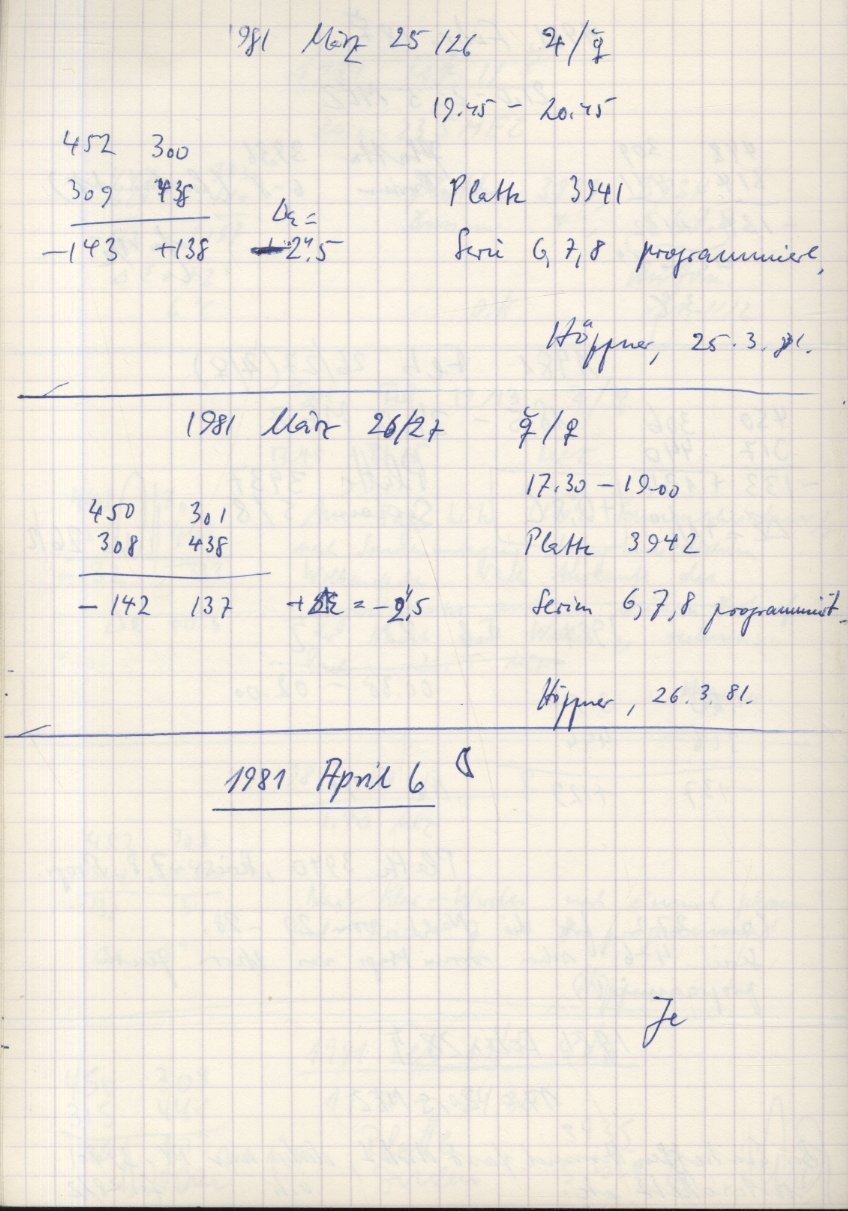 1981 März 25/26 ♃/☿
19.45 – 20.45
452 300
309 438
Δε =
–143 +138 –2",5
Platte 3941
Serie 6, 7, 8 programmiert,
Höppner, 25.3.81.
1981 März 26/27 ☿/♀
17.30 – 19.00
450 301
308 438
–142 137 Δε = –2",5
Platte 3942
Serien 6, 7, 8 programmiert.
Höppner, 26.3.81.
1981 April 6 ☾
Je